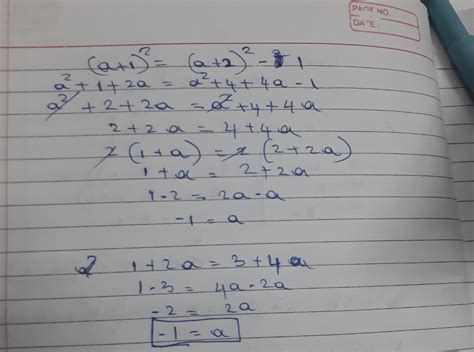 PAGE NO.
DATE:
(a+1)² = (a+2)² - 1
a² + 1 + 2a = a² + 4 + 4a - 1
a² + 2 + 2a = a² + 4 + 4a
2 + 2a = 4 + 4a
2 (1 + a) = 2 (2 + 2a)
1 + a = 2 + 2a
1 - 2 = 2a - a
-1 = a
1 + 2a = 3 + 4a
1 - 3 = 4a - 2a
-2 = 2a
-1 = a